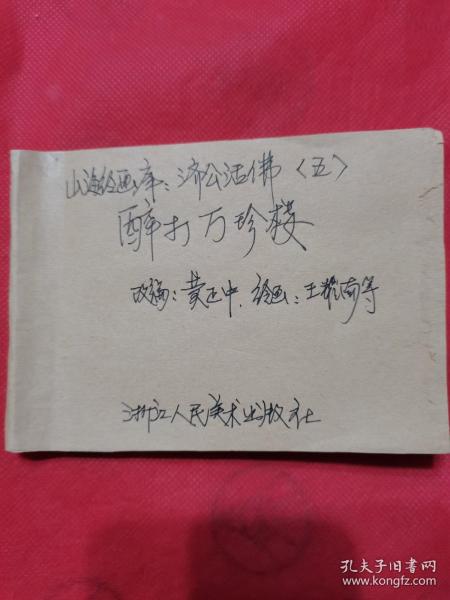 山海经画库：济公活佛〈五〉
醉打万珍楼
改编：黄正中.绘画：王耀南等
浙江人民美术出版社
孔夫子旧书网
www.kongfz.com